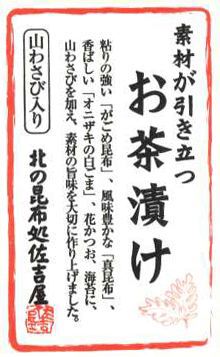 素材が引き立つ
お茶漬け
粘りの強い「がごめ昆布」、風味豊かな「真昆布」、
香ばしい「オニザキの白ごま」、花かつお、海苔に、
山わさびを加え、素材の旨味を大切に作り上げました。
山わさび入り
北の昆布処佐吉屋